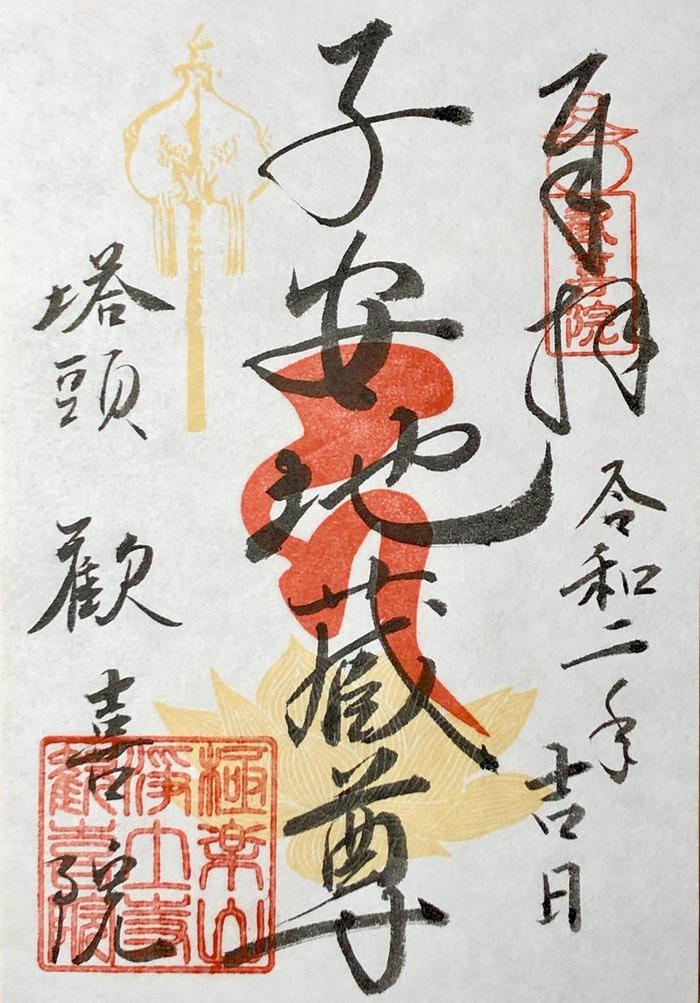 奉拝
令和二年
吉日
子安地蔵尊
塔頭
歓喜院
歓喜院
極楽山
浄土寺
歓喜院